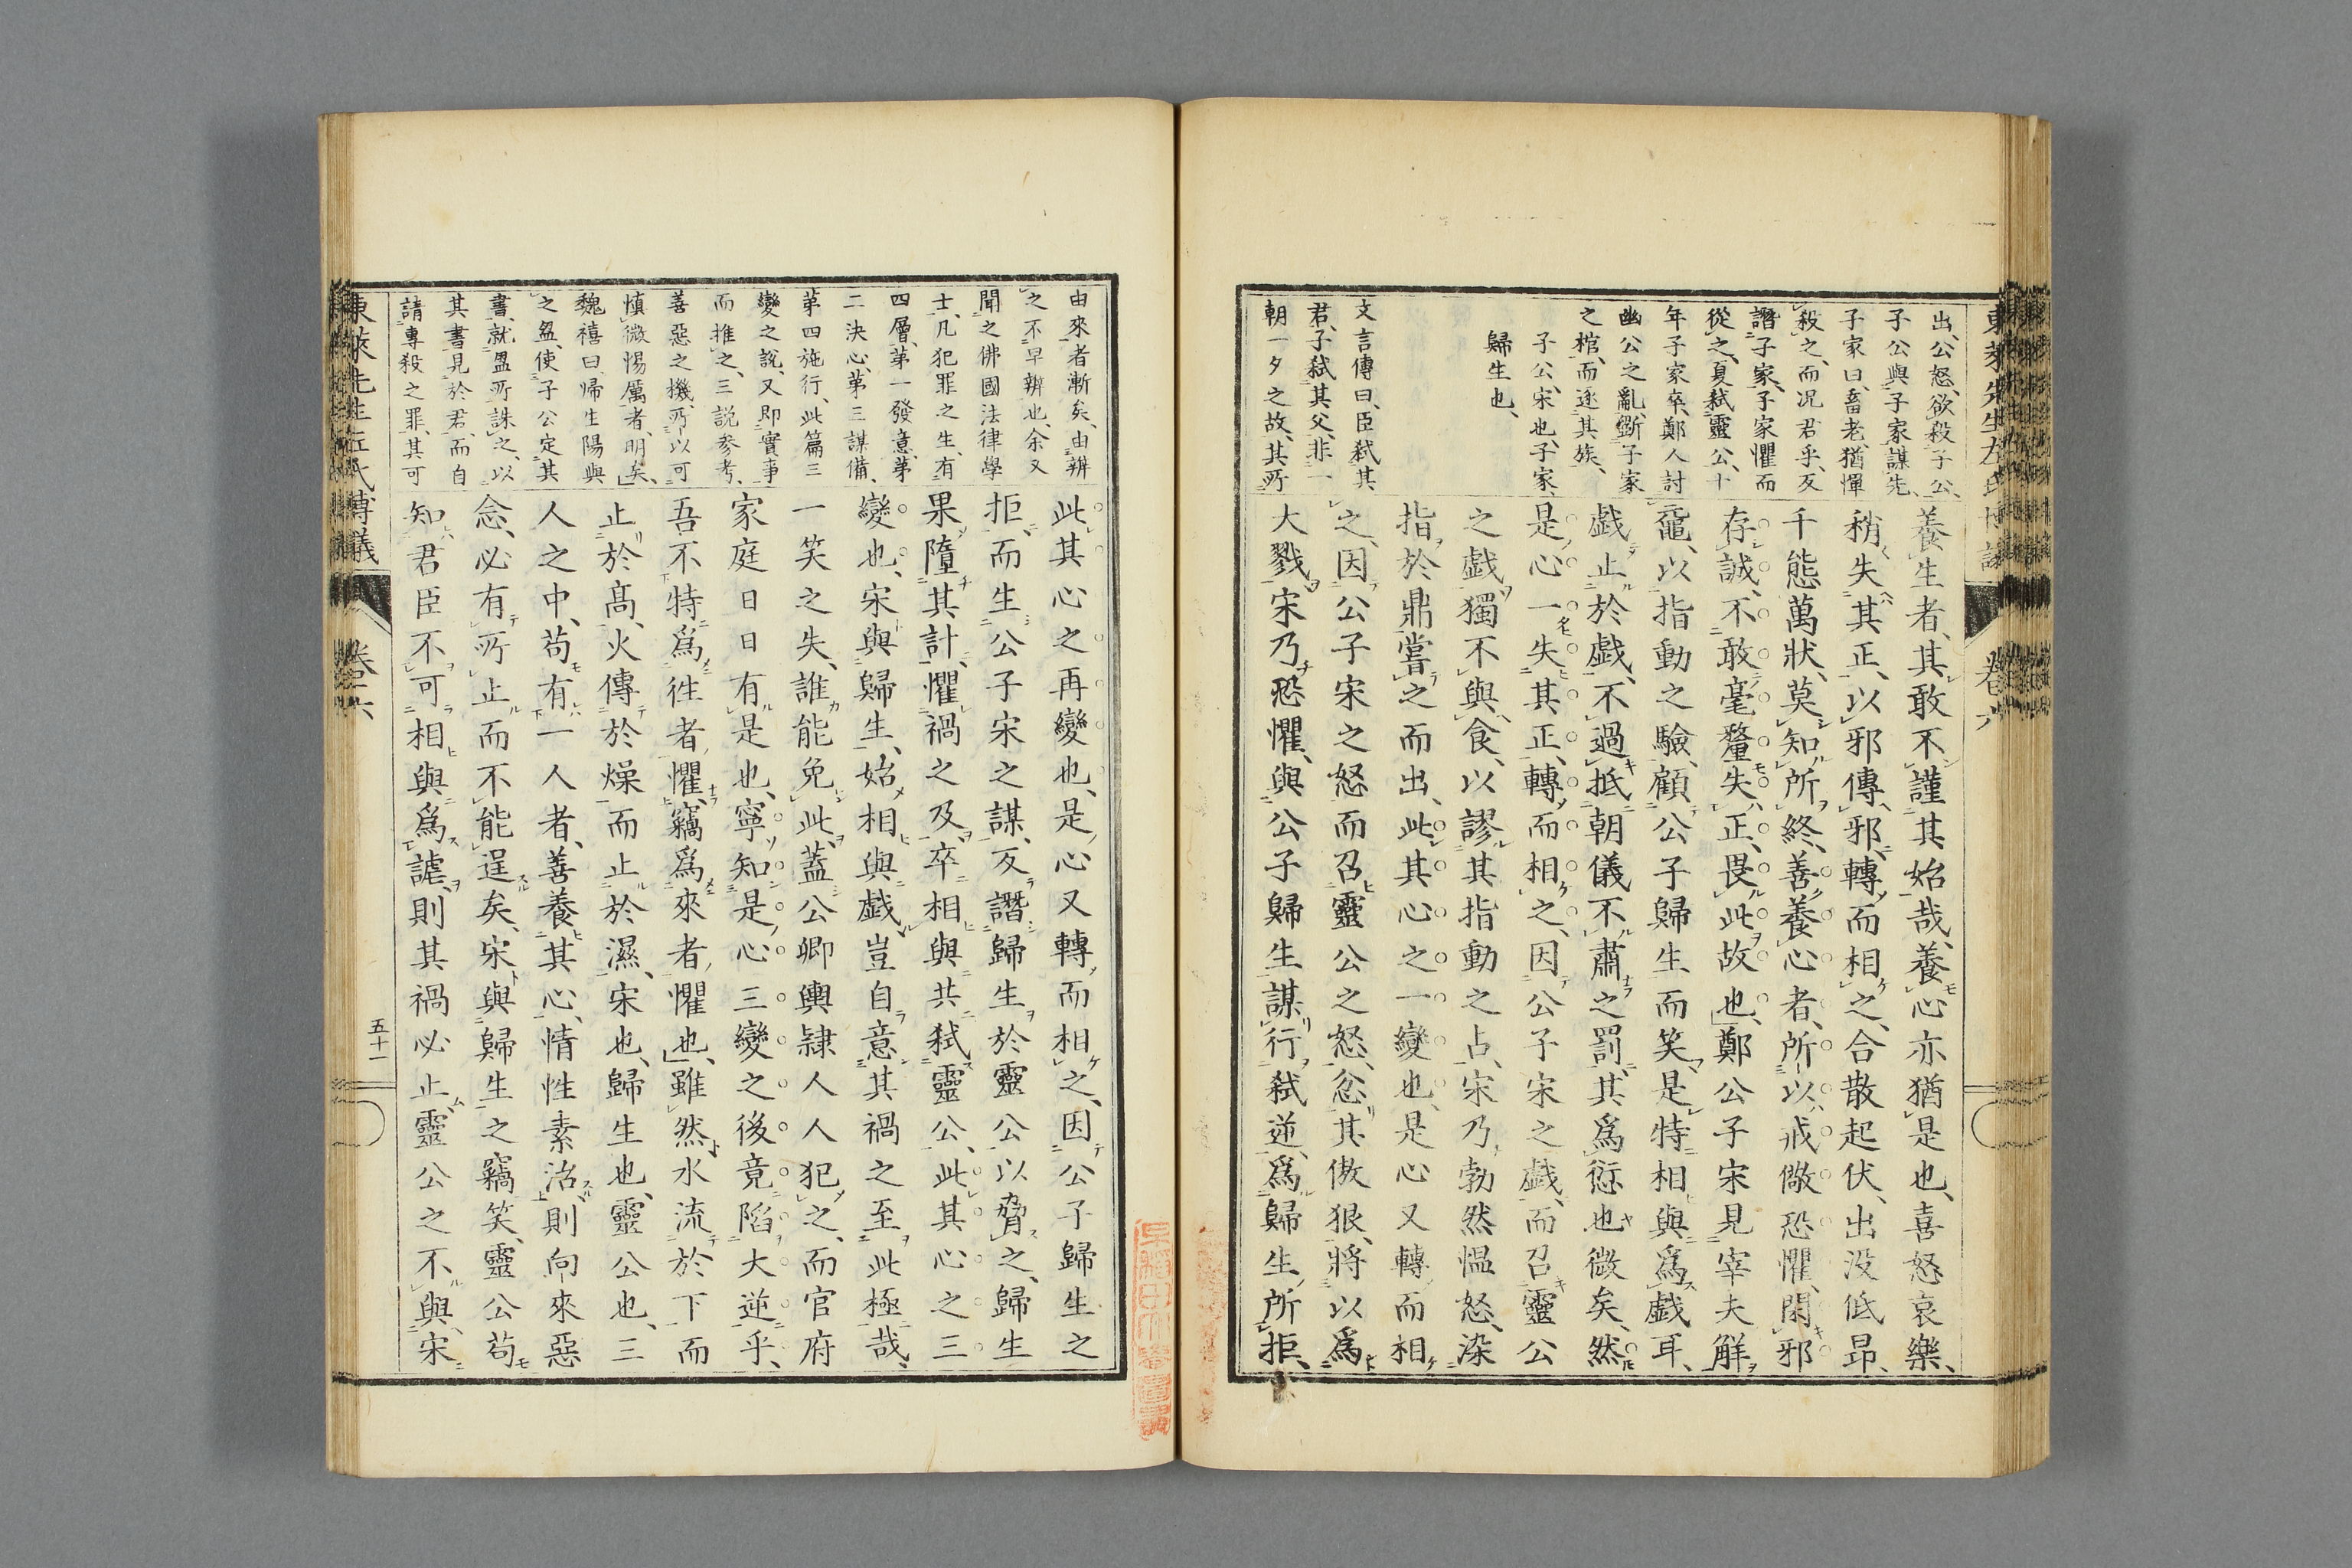 出、公怒、欲殺子公、
子公與子家謀先、
子家曰、畜老、猶憚
殺之、而況君乎、反
譖子家、子家懼而
從之、夏弑靈公、十
年子家卒、鄭人討
幽公之亂、斲子家
之棺、而逐其族、
子公、宋也、子家、
歸生也、
文言傳曰、臣弑其
君、子弑其父、非一
朝一夕之故、其所
養生者、其敢不謹其始哉、養心亦猶是也、喜怒哀樂、
稍失其正、以邪傳邪、轉而相之、合散起伏、出没低昂、
千態萬狀、莫知所終、善養心者、所以戒儆恐懼、閑邪
存誠、不敢毫釐失正、畏此故也、鄭公子宋見宰夫解
黿、以指動之驗、顧公子歸生而笑、是特相與爲戯耳、
戯止於戯、不過抵朝儀不肅之罰、其爲愆也微矣、然
是心一失其正、轉而相之、因公子宋之戯、而召靈公
之戯、獨不與食、以謬其指動之占、宋乃勃然愠怒、染
指於鼎、嘗之而出、此其心之一變也、是心又轉而相
之、因公子宋之怒而召靈公之怒、忿其傲狠、將以爲
大戮、宋乃恐懼、與公子歸生謀行弑逆、爲歸生所拒、
東萊先生左氏博議
卷六
由來者漸矣、由辨
之不早辨也、余又
聞之佛國法律學
士、凡犯罪之生、有
四層、第一發意、第
二決心、第三謀備、
第四施行、此篇三
變之説、又即實事
而推之、三説參考、
善惡之機、所以可
愼微惕厲者、明矣、
魏禧曰、歸生陽與
之盟、使子公定其
書、就盟所誅之、以
其書見於君、而自
請專殺之罪、其可
此其心之再變也、是心又轉而相之、因公子歸生之
拒、而生公子宋之謀、反譖歸生於靈公以脅之、歸生
果墮其計、懼禍之及、卒相與共弑靈公、此其心之三
變也、宋與歸生、始相與戯、豈自意其禍之至此極哉、
一笑之失、誰能免此、蓋公卿輿隷人人犯之、而官府
家庭日日有是也、寧知是心三變之後竟陷大逆乎、
吾不特爲徃者懼、竊爲來者懼也、雖然水流於下而
止於髙、火傳於燥而止於濕、宋也、歸生也、靈公也、三
人之中、苟有一人者、善養其心、情性素治、則向來惡
念、必有所止而不能逞矣、宋與歸生之竊笑、靈公苟
知君臣不可相與爲謔、則其禍必止、靈公之不與宋
東萊先生左氏博議
卷六
五十一